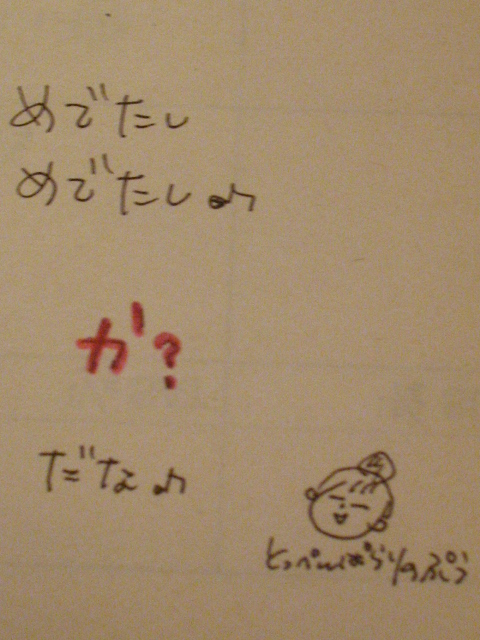 めでたし
めでたし♪
か?
だな♪
とっぺんぱらりのぷう